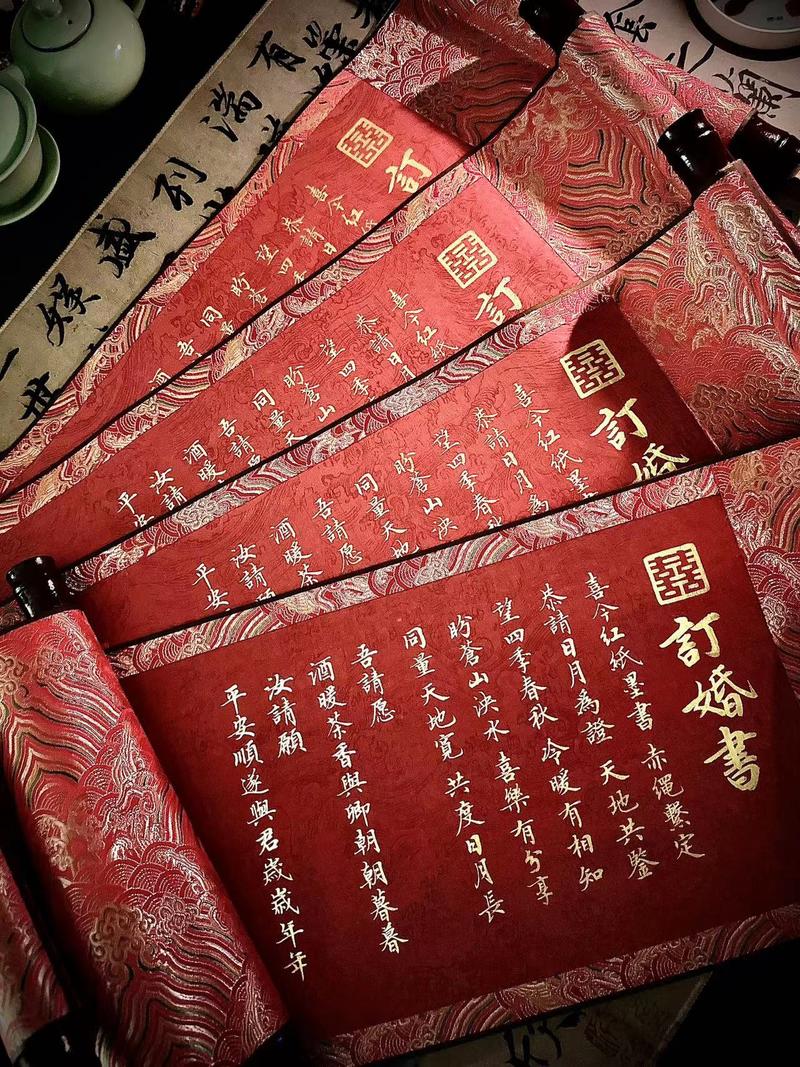 有
湍
列
盛
一
世
囍
訂
喜今红紙
恭請日
望四季
盼蒼
同量
吾
酒
囍
訂
喜今红紙
恭請日月
望四季
盼蒼山
同量天
吾請
酒暖
汝請
平安
囍
訂婚
喜今红紙墨
恭請日月為
望四季春秋
盼蒼山泱
同量天地
吾請愿
酒暖茶
汝請願
平安
囍
訂婚書
喜今红紙墨書 赤繩繫定
恭請日月為證 天地共鑒
望四季春秋 冷暖有相知
盼蒼山泱水 喜樂有分享
同量天地寬 共度日月長
吾請愿
酒暖茶香與卿朝朝暮暮
汝請願
平安順遂與君歲歲年年